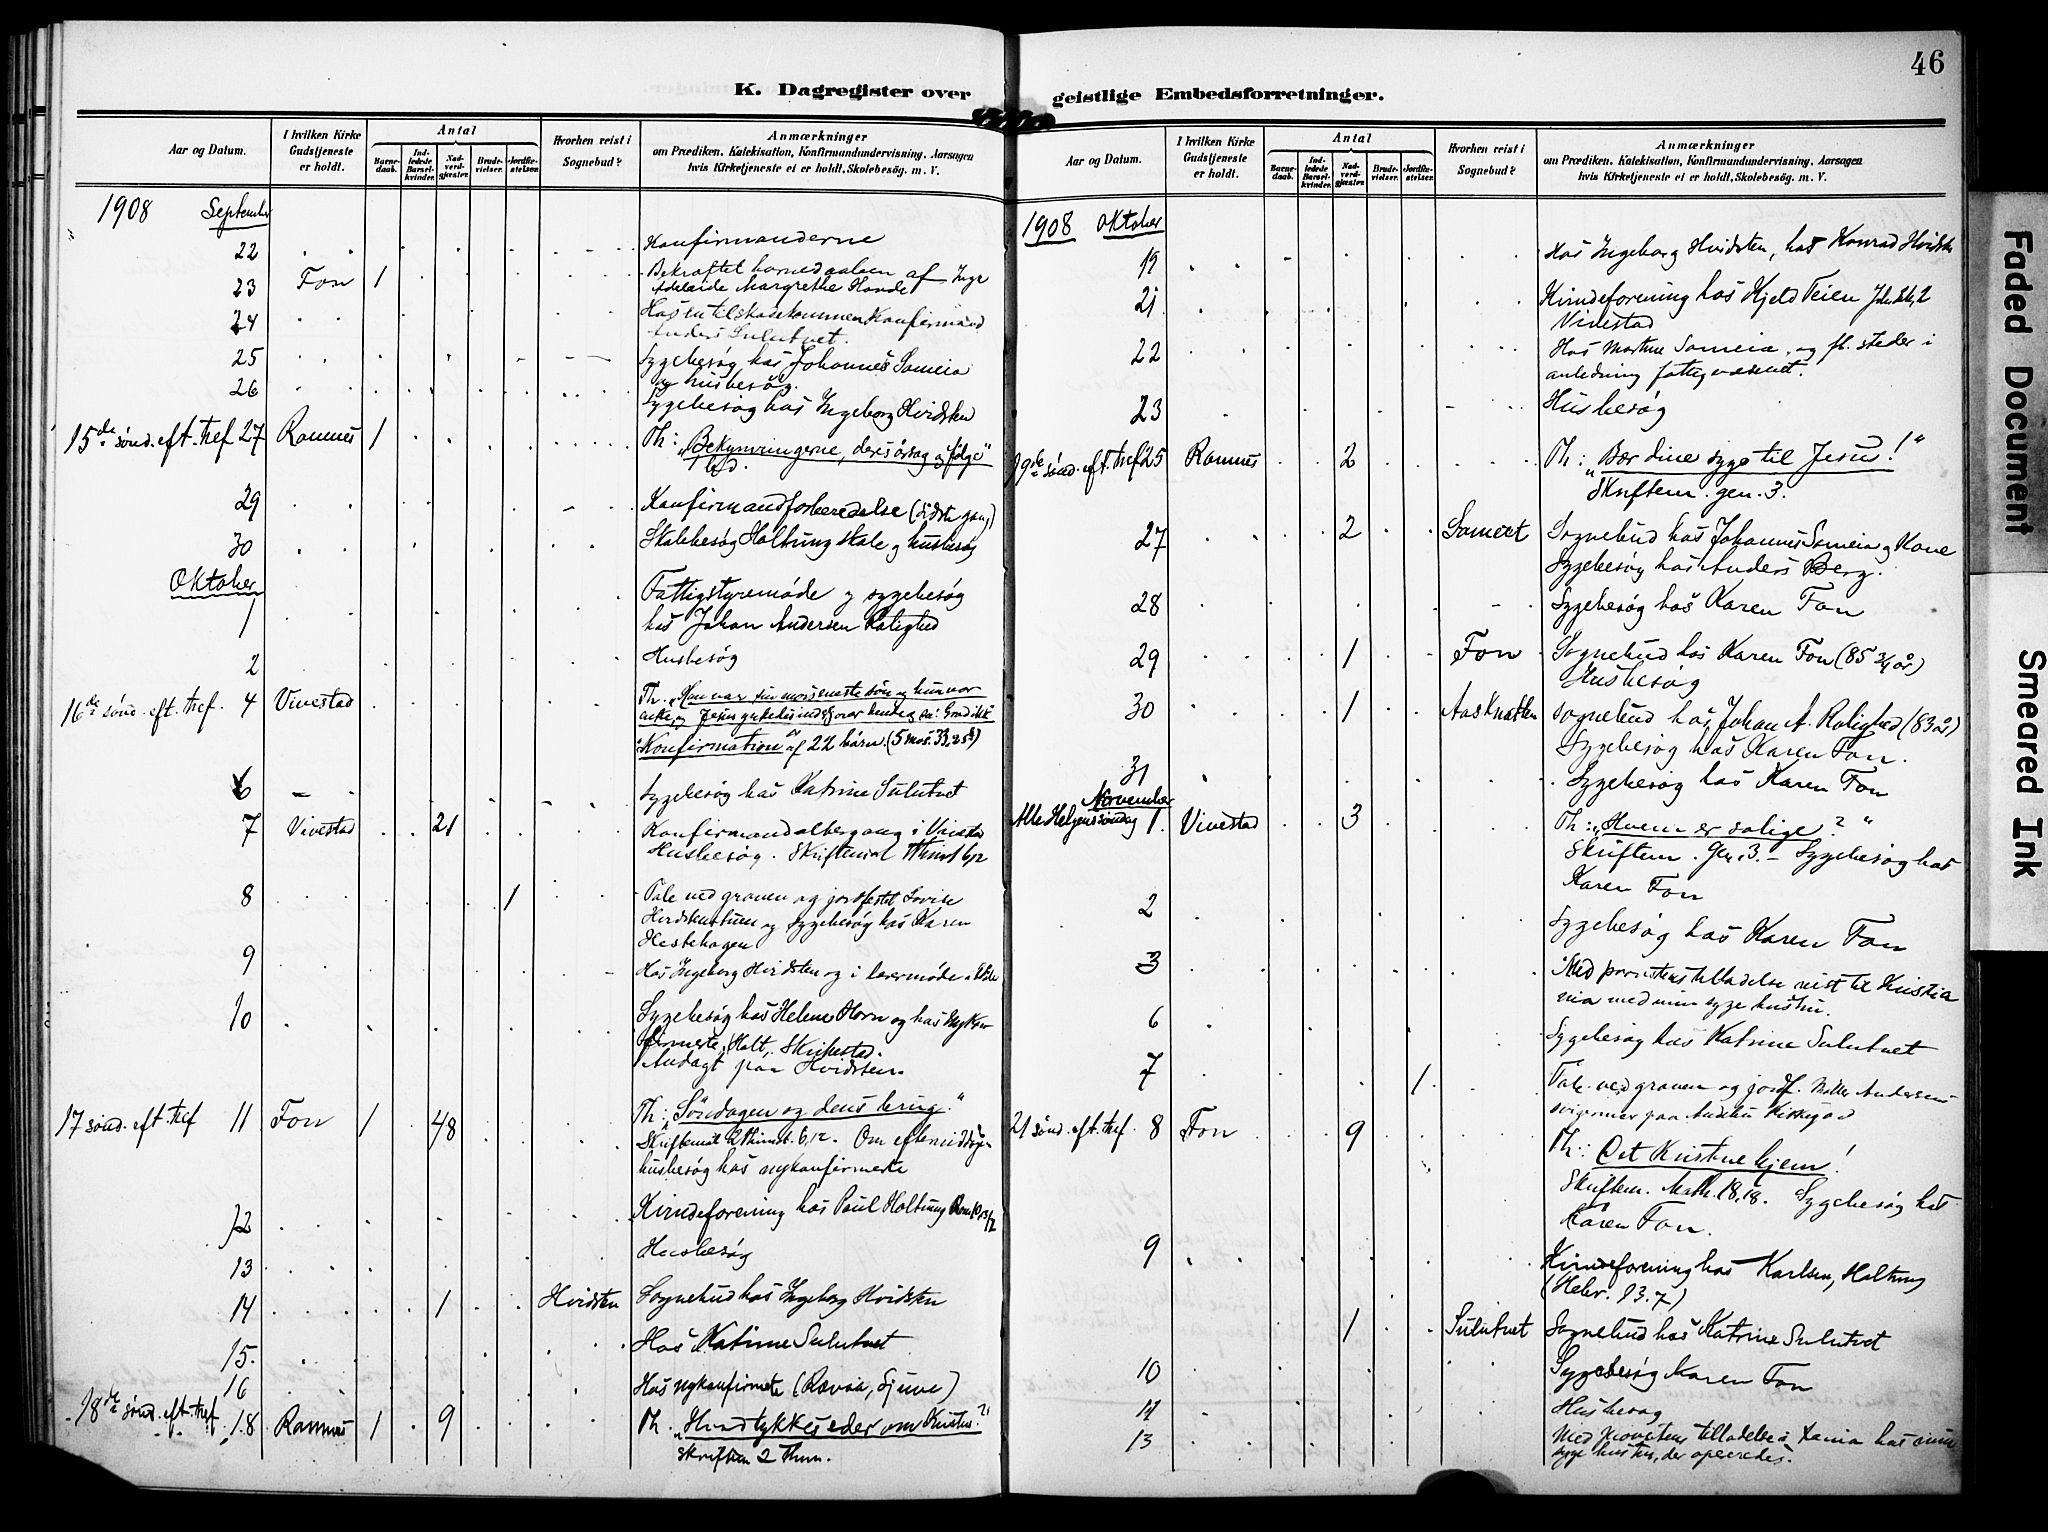 46
K. Dagregister over geistlige Embedsforretninger.
Aar og Datum.
I hvilken Kirke Gudstjeneste er holdt.
Antal
Barnedaab.
Indledede Barselkvinder.
Nadverdgjester.
Brudevielser.
Jordfæstelser.
Hvorhen reist i Sognebud?
Anmærkninger
om Prædiken, Katekisation, Konfirmandundervisning, Aarsagen
hvis Kirketjeneste ei er holdt, Skolebesøg. m. V.
1908 September
22 Konfirmanderne
23 Fon 1 Bekræftet barnedaaben af
Adelaide Margrethe
24 Hos en tilskadekommen Konfirmand
Anders Sulutvet.
25 Sygebesøg hos Johannes Someia
og husbesøg.
26 Sygebesøg hos Ingeborg Hvidsten
15de sønd. eft. tref 27 Ramnes 1 Th: "Bekymringerne, deres årsag og følge"
29 Konfirmandforberedelse (sidste gang)
30 Skolebesøg Holtung skole og husbesøg
Oktober
1 Fattigstyremøde og sygebesøg
hos Johan Andersen Rolighed
2 Husbesøg
16de sønd. eft. tref. 4 Vivestad Th. "Han var sin mors eneste søn og hun var
enke, og Jesus ynkedes inderl. over hende
Konfirmation af 22 børn. (5 mos. 33, 25)
6 Sygebesøg hos Katrine Sulutvet
7 Vivestad 21 Konfirmandaltergang i Vivestad
Husbesøg. Skriftemål 1 Thim. 6,12
8 1 Tale ved graven og jordfestet Lovise
og sygebesøg hos Karen
Hestehagen
9 Hos Ingeborg Hvidsten og i
10 Sygebesøg hos Helene Horn og hos nykon
firmerte, Holt,
Andagt paa Hvidsten.
17 sønd. eft. tref 11 Fon 1 48 Th: "Søndagen og dens brug."
Skriftemål 1 Thimot. 6,12. Om eftermiddagen
husbesøg hos nykonfirmerte
12 Kvindeforening hos Paul Holtung Rom. 10,
13 Husbesøg
14 1 Hvidsten Sognebud hos Ingeborg Hvidsten
15. Hos Katrine Sulutvet
16 Hos nykonfirmerte
18de sønd. eft. tref. 18 Ramnes 1 9 Th. "Hvad tykkes eder om Kristus?"
Skriftem 2 Thim.
Aar og Datum.
I hvilken Kirke Gudstjeneste er holdt.
Antal
Barnedaab.
Indledede Barselkvinder.
Nadverdgjester.
Brudevielser.
Jordfæstelser.
Hvorhen reist i Sognebud?
Anmærkninger
om Prædiken, Katekisation, Konfirmandundervisning, Aarsagen
hvis Kirketjeneste ei er holdt, Skolebesøg. m. V.
1908 Oktober
19 Hos Ingeborg Hvidsten, hos Konrad Hvidsten
21 Kvindeforening hos Kjeld Teien
Vivestad
22 Hos Martine Someia, og fl. steder i
anledning fattigvæsenet.
23 Husbesøg
19de sønd. eft. tref 25 Ramnes 2 Th: "Bær dine syge til Jesus!"
Skriftem. gen. 3.
27 2 Someet Sognebud hos Johannes Someia og Kone
Sygebesøg hos Anders Berg.
28 Sygebesøg hos Karen Fon
29 1 Fon Sognebud hos Karen Fon (85 3/4 år)
Husbesøg
30 1 Aasknatten Sognebud hos Johan A. Rolighed (83 år)
Sygebesøg hos Karen Fon.
31 Sygebesøg hos Karen Fon
November
Alle Helgenssøndag 1. Vivestad 3 Th: "Hvem er salige?"
Skriftem. Gen. 3. - Sygebesøg hos
Karen Fon
2 Sygebesøg hos Karen Fon
3 Med provstens tilladelse reist til Kristia
nia med min syge hustru.
6 Sygebesøg hos Katrine Sulutvet
7 1 Tale ved graven og jordf. Andersens
svigermor paa
21 sønd. eft. tref. 8 Fon 9 Th: Det Kristne hjem!
Skriftem. Math. 18,18. Sygebesøg hos
Karen Fon.
9 Kvindeforening hos Karlsen, Holtung
(Hebr. 13. 7)
1 Sulutvet Sognebud hos Katrine Sulutvet
10 Sygebesøg Karen Fon
11 Husbesøg
13 Med Provstens tilladelse i Xania hos min
syge hustru, der opereredes.
Faded Document
Smeared Ink